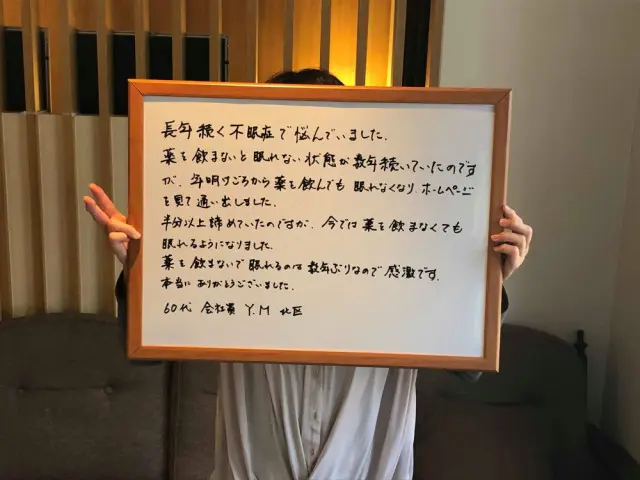 長年続く不眠症で悩んでいました.
薬を飲まないと眠れない状態が数年続いていたのです
が、年明けごろから薬を飲んでも眠れなくなり、ホームページ
を見て通い出しました.
半分以上諦めていたのですが、今では薬を飲まなくても
眠れるようになりました.
薬を飲まないで眠れるのは数年ぶりなので感激です.
本当にありがとうございました.
60代 会社員 Y.M 北区